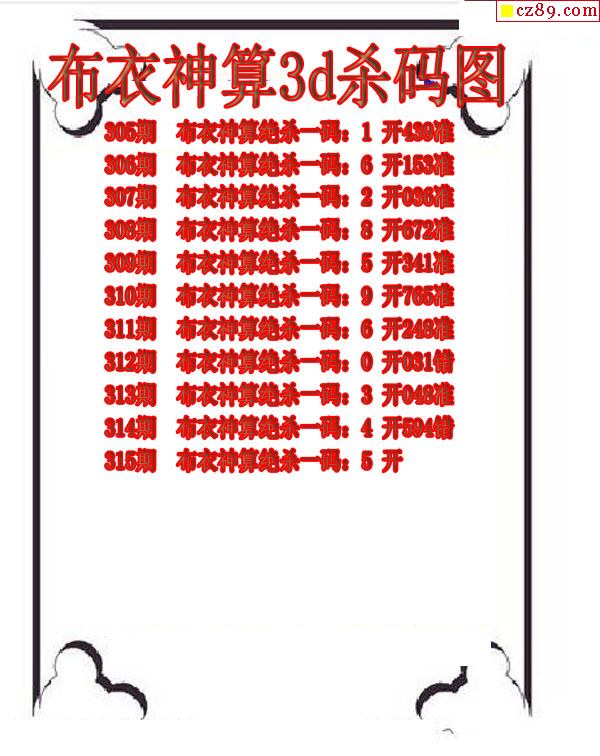 cz89.com
布衣神算3d杀码图
305期 布衣神算绝杀一码：1 开439准
306期 布衣神算绝杀一码：6 开153准
307期 布衣神算绝杀一码：2 开036准
308期 布衣神算绝杀一码：8 开672准
309期 布衣神算绝杀一码：5 开341准
310期 布衣神算绝杀一码：9 开765准
311期 布衣神算绝杀一码：6 开248准
312期 布衣神算绝杀一码：0 开031错
313期 布衣神算绝杀一码：3 开048准
314期 布衣神算绝杀一码：4 开594错
315期 布衣神算绝杀一码：5 开